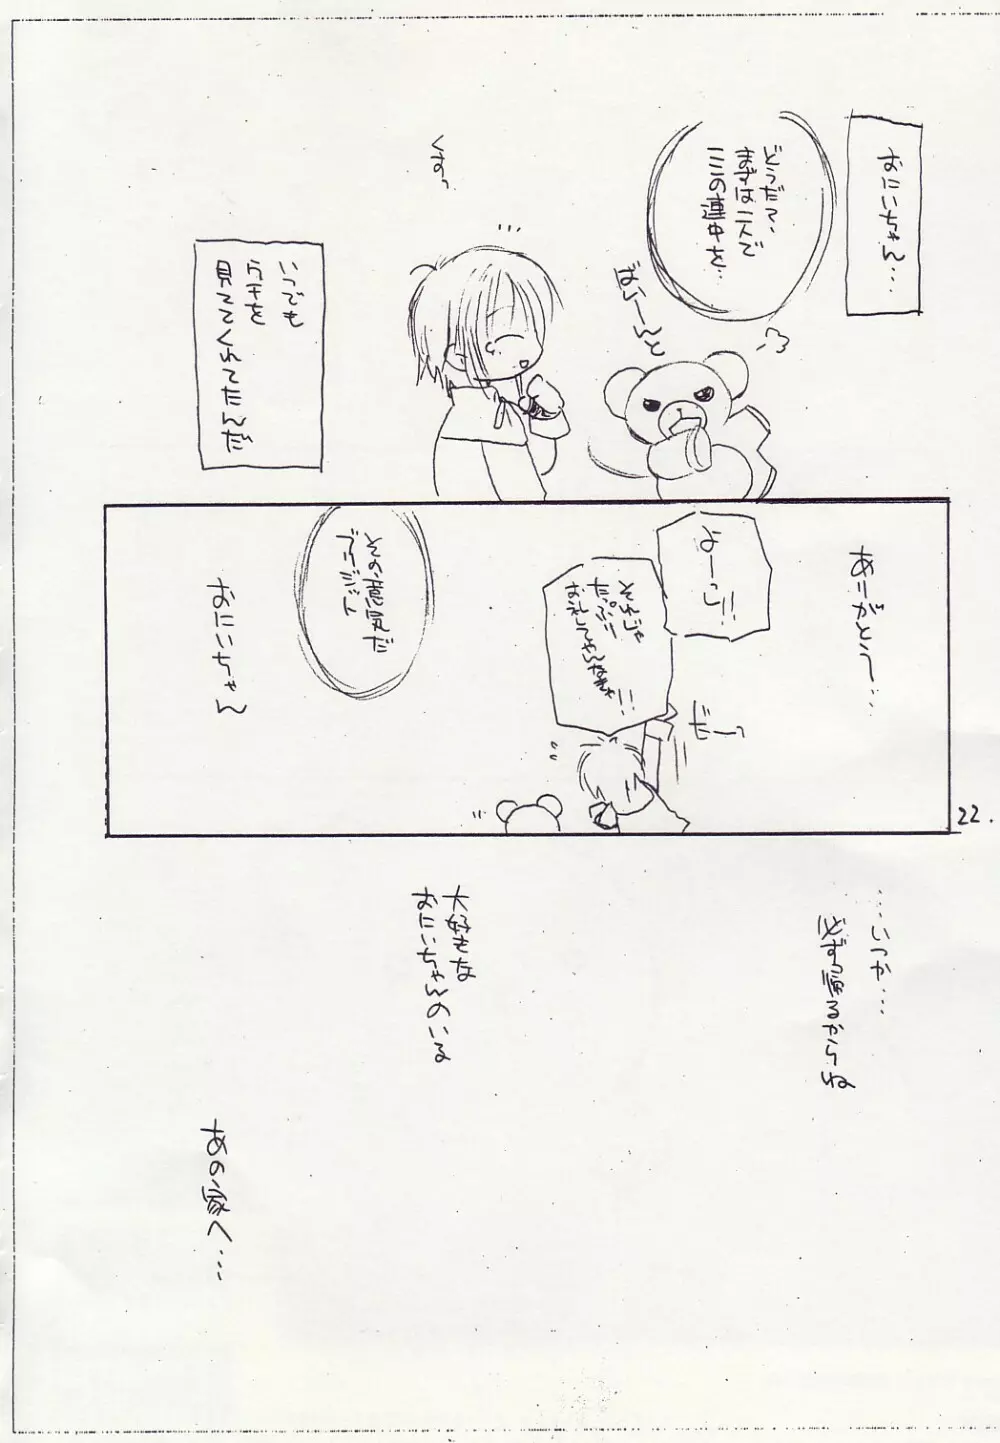 おにいちゃん…
どうだ?、
まずは二人で
ここの連中を…
ばーんと
くすっ
いつでも
ウチを
見ててくれてたんだ
ありがとう…
よーし!!
それじゃ
たっぷり
おにいちゃん
だーっ
その意気だ
ブリジット
22.
…いつか…
必ず帰るからね
大好きな
おにいちゃんのいる
あの家へ…